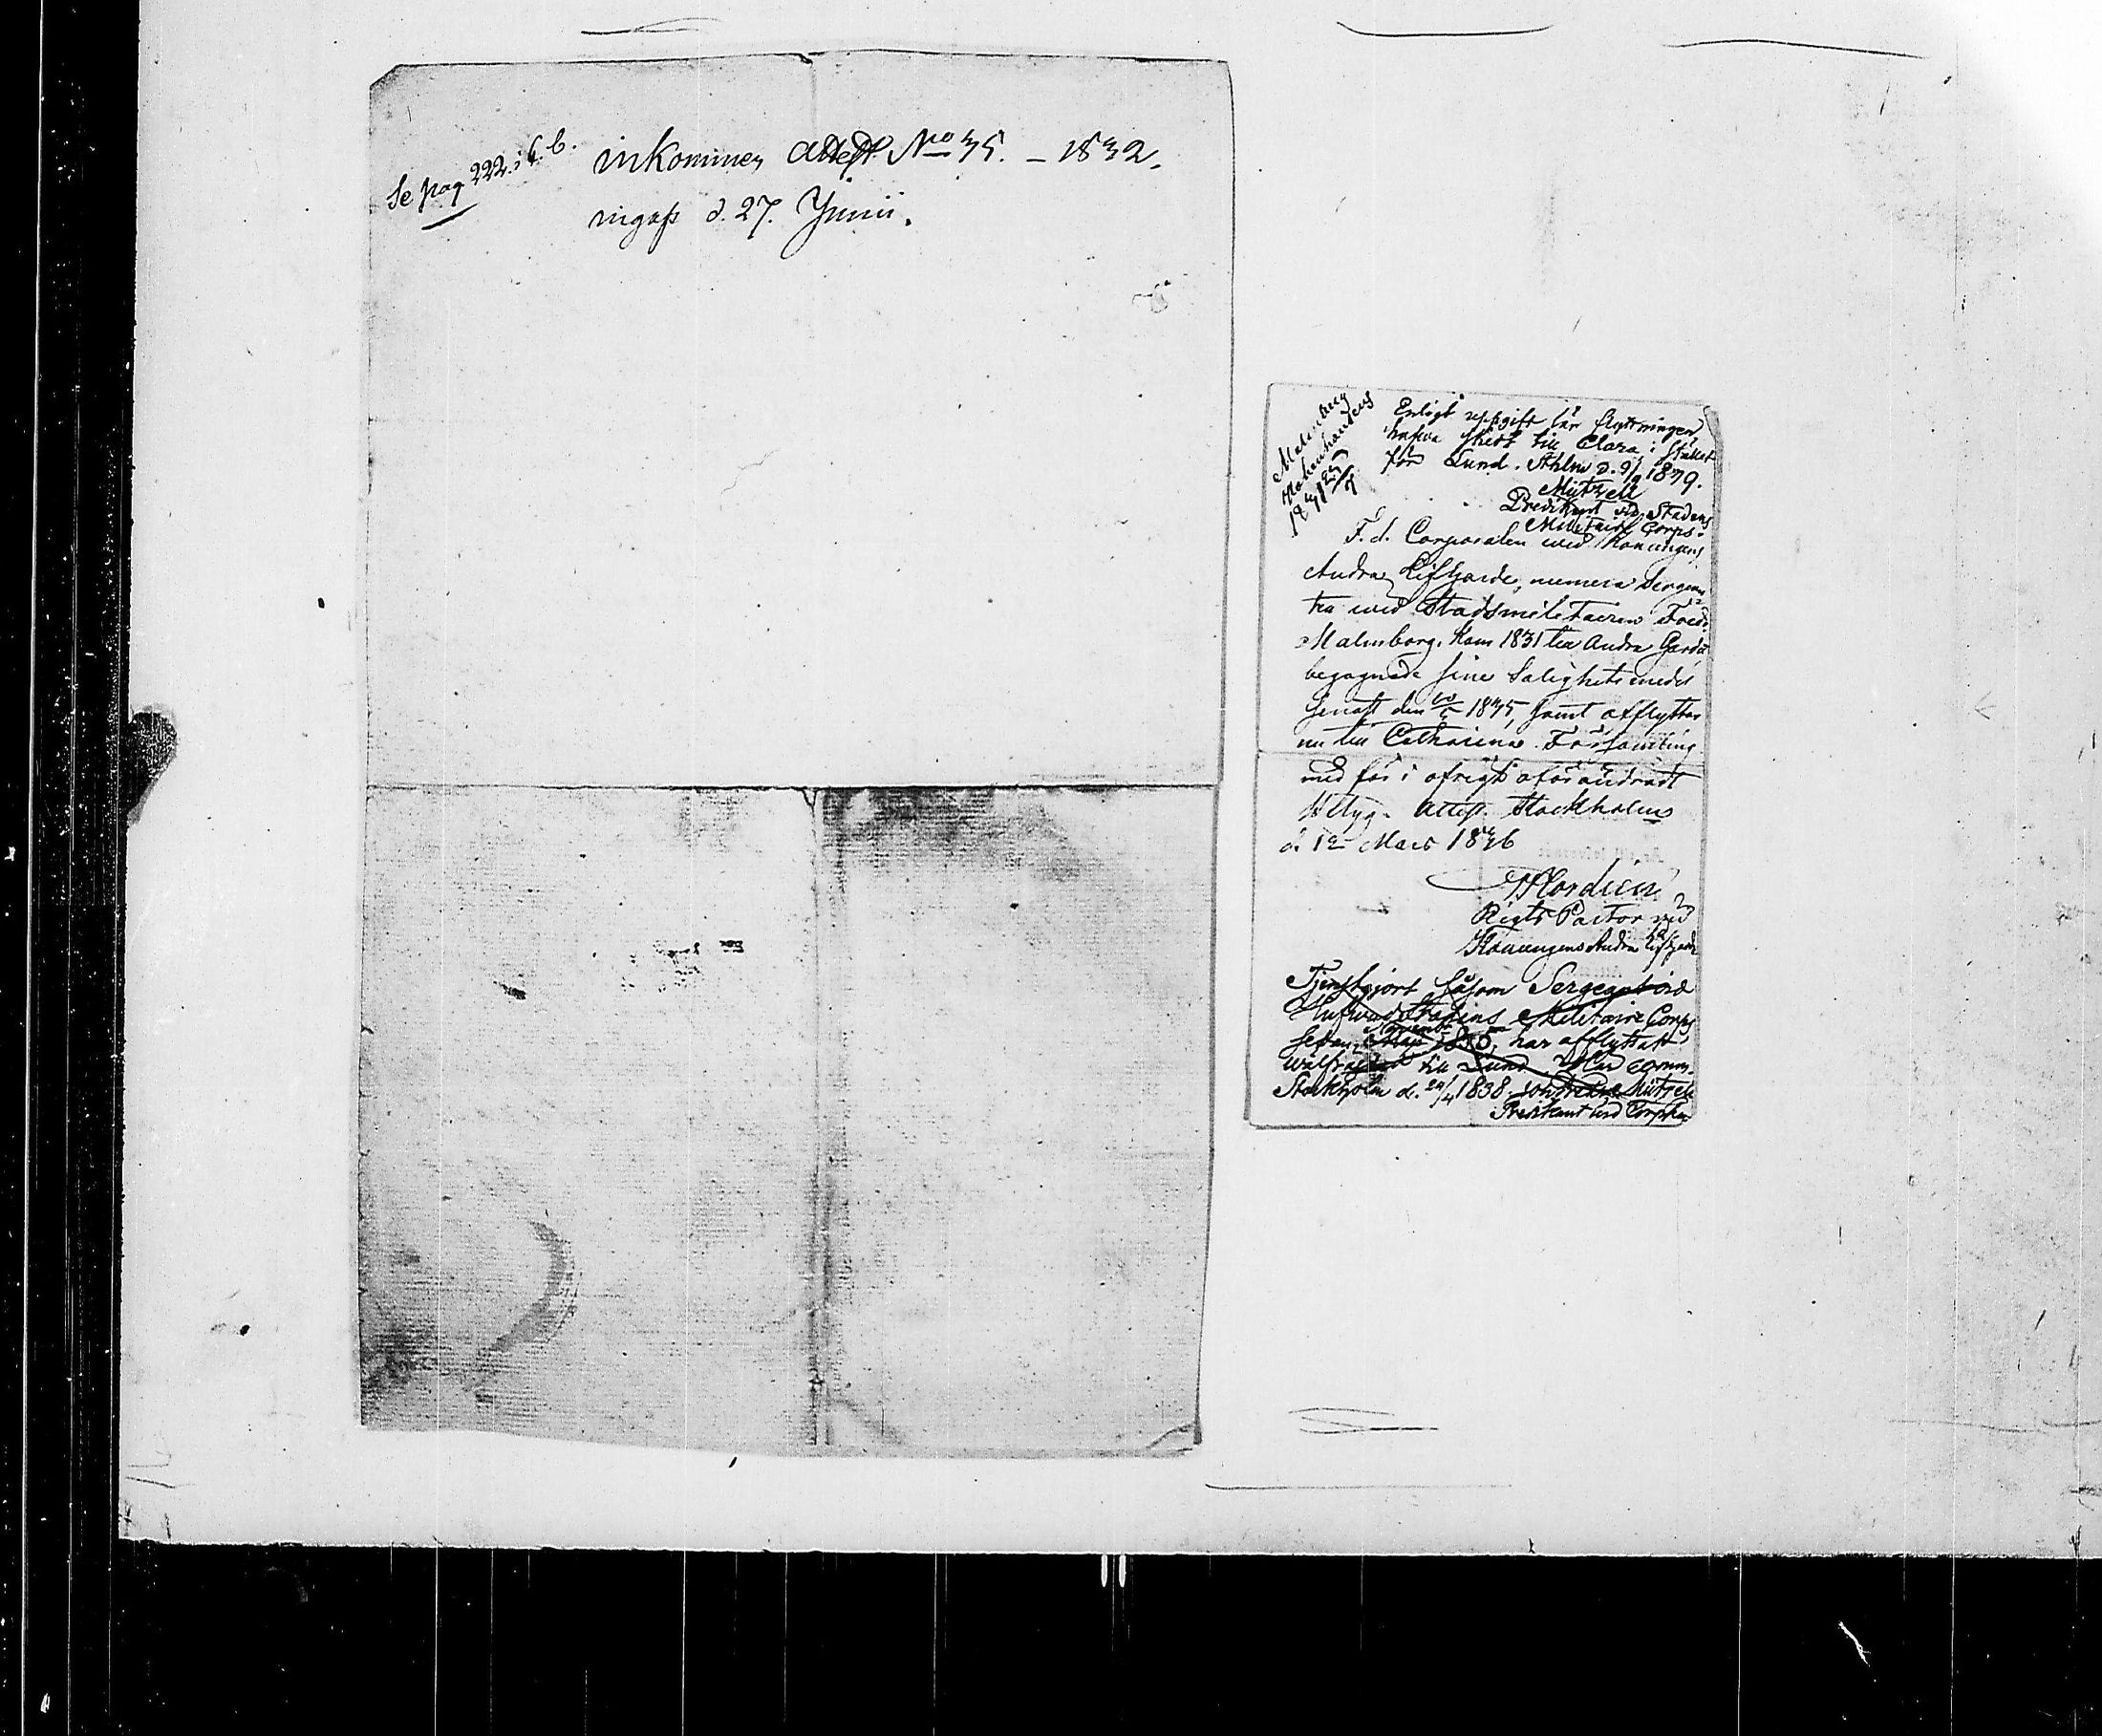 Se pag 222. i f. b.
inkommen Attest No 35. – 1832.
ingaf d. 27. Junii.
Malmborg
18
Enligt uppgift lär flyttningen
hafva skett till Clara i stället
för Lund. Sthlm d. 9/ 1839.
Mützell
Predikant vid Stadens
Militaire Corps.
F. d. Corporalen wid Konungens
Andra Lifgarde, numera Sergean-
ten wid Stadsmilitairen Fredr.
Malmborg, kom 1831 till Andra Gardet
begagnade sine Salighetsmedel
senast den 1835, samt afflyttar
nu till Catharina Församling
med för i öfrigt oförändradt
Attest. Stockholm
d. 12 Mars 1836
Nordin
Regts Pastor vid
Konungens Andra Lifgarde
Tjenstgjort såsom Sergeant vid
Hufvudstadens Militaire Corps
sedan 1835, har afflyttat
till Lund
Stockholm d. 24/4 1838. Mützell
Predikant vid Corpsen